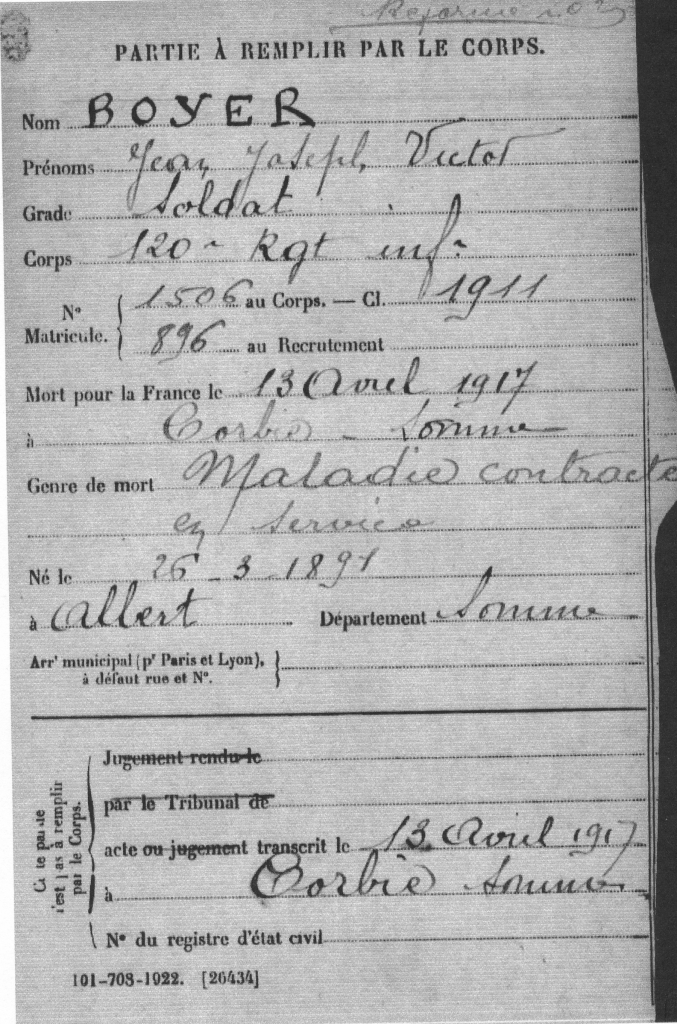 Réforme n° 2
PARTIE À REMPLIR PAR LE CORPS.
Nom BOYER
Prénoms Jean Joseph, Victor
Grade Soldat
Corps 120e Rgt infie
N° Matricule. { 1506 au Corps. — Cl. 1911
896 au Recrutement
Mort pour la France le 13 Avril 1917
à Corbie - Somme
Genre de mort Maladie contracte
en service
Né le 26 - 3 - 1891
à Albert Département Somme
Arrt municipal (pr Paris et Lyon),
à défaut rue et N°.
Jugement rendu le
par le Tribunal de
acte ou jugement transcrit le 13 Avril 1917
à Corbie Somme
N° du registre d'état civil
Cette partie
n'est pas à remplir
par le Corps.
101-708-1922. [26434]